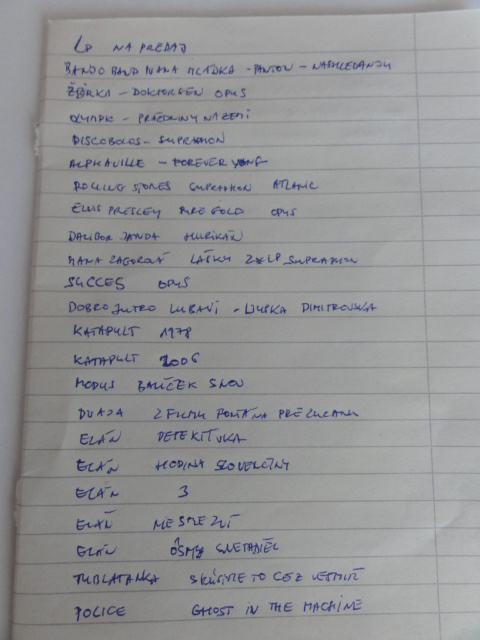 LP NA PREDAJ
BANJO BAND IVANA MLÁDKA - PANTON - NASHLEDANOU
ŽBIRKA - DOKTOR SEN OPUS
OLYMPIC - PRÁZDNINY NA ZEMI
DISCOBOLOS - SUPRAPHON
ALPHAVILLE - FOREVER YONG
ROLLING STONES SUPRAPHON ATLANTIC
ELVIS PRESLEY PURE GOLD OPUS
DALIBOR JANDA HURIKÁN
HANA ZAGOROVÁ LÁTKY 2xLP SUPRAPHON
SUCCES OPUS
DOBRO JUTRO LUBAVI - LJUPKA DIMITROVSKA
KATAPULT 1978
KATAPULT 2006
MODUS BALÍČEK SNOV
DVAJA Z FILMU FONTÁNA PRE ZUZANU
ELÁN DETEKTÍVKA
ELÁN HODINA SLOVENČINY
ELÁN 3
ELÁN NESMEZUÍ
ELÁN ÔSMY SVETADIEL
TUBLATANKA SKÚSME TO CEZ VESMÍR
POLICE GHOST IN THE MACHINE